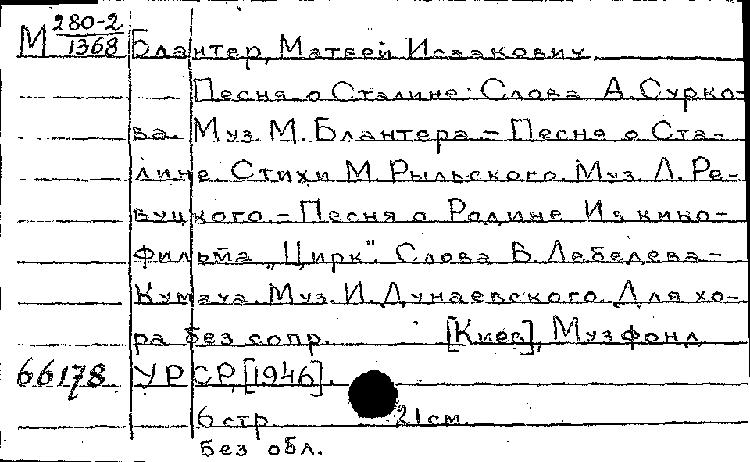 М 280-2/1368 Блантер, Матвей Исаакович
Песня о Сталине: Слова А. Сурко-
ва. Муз. М. Блантера – Песня о Ста-
лине. Стихи М. Рыльского. Муз. Л. Ре-
вуцкого. – Песня о Родине. Из кино-
фильма „Цирк". Слова В. Лебедева-
Кумача. Муз. И. Дунаевского. Для хо-
ра без сопр. [Киев], Музфонд
66178 УРСР, [1946].
6 стр. 21 см.
без обл.